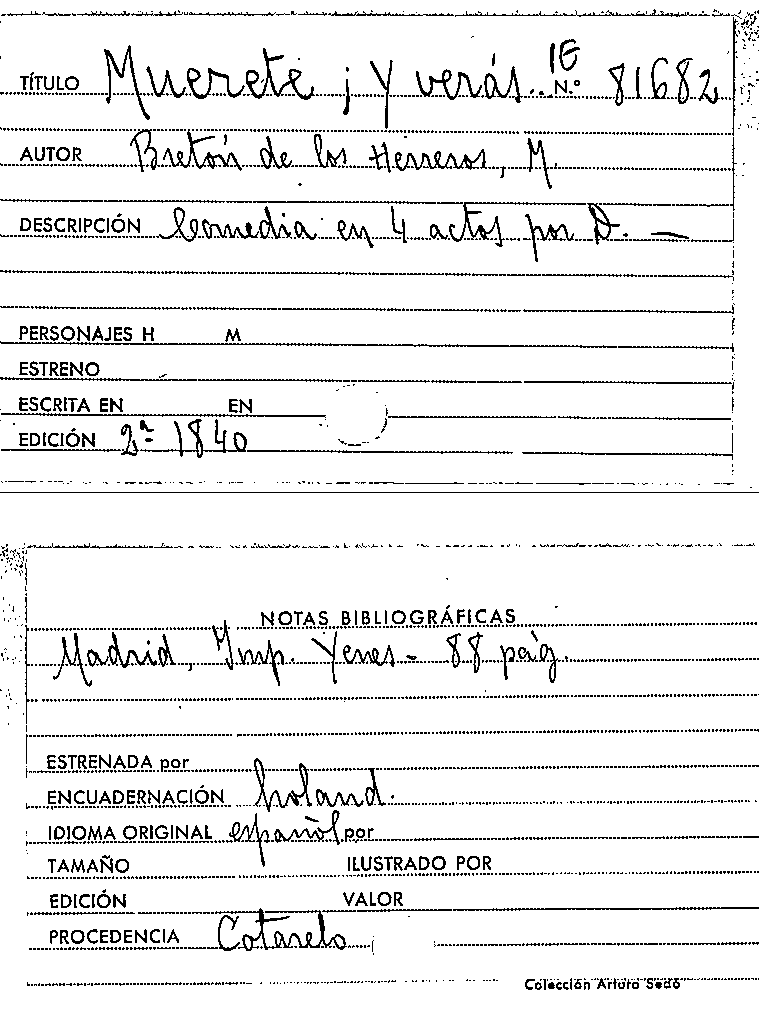 TÍTULO Muerete ¡ Y verás.. IE N.º 81682
AUTOR Bretón de los Herreros, M.
DESCRIPCIÓN Comedia en 4 actos por D. —
PERSONAJES H M
ESTRENO
ESCRITA EN EN
EDICIÓN 2ª 1840
NOTAS BIBLIOGRÁFICAS
Madrid, Imp. Yenes - 88 pág.
ESTRENADA por
ENCUADERNACIÓN holand.
IDIOMA ORIGINAL español por
TAMAÑO ILUSTRADO POR
EDICIÓN VALOR
PROCEDENCIA Cotarelo
Colección Arturo Sedó